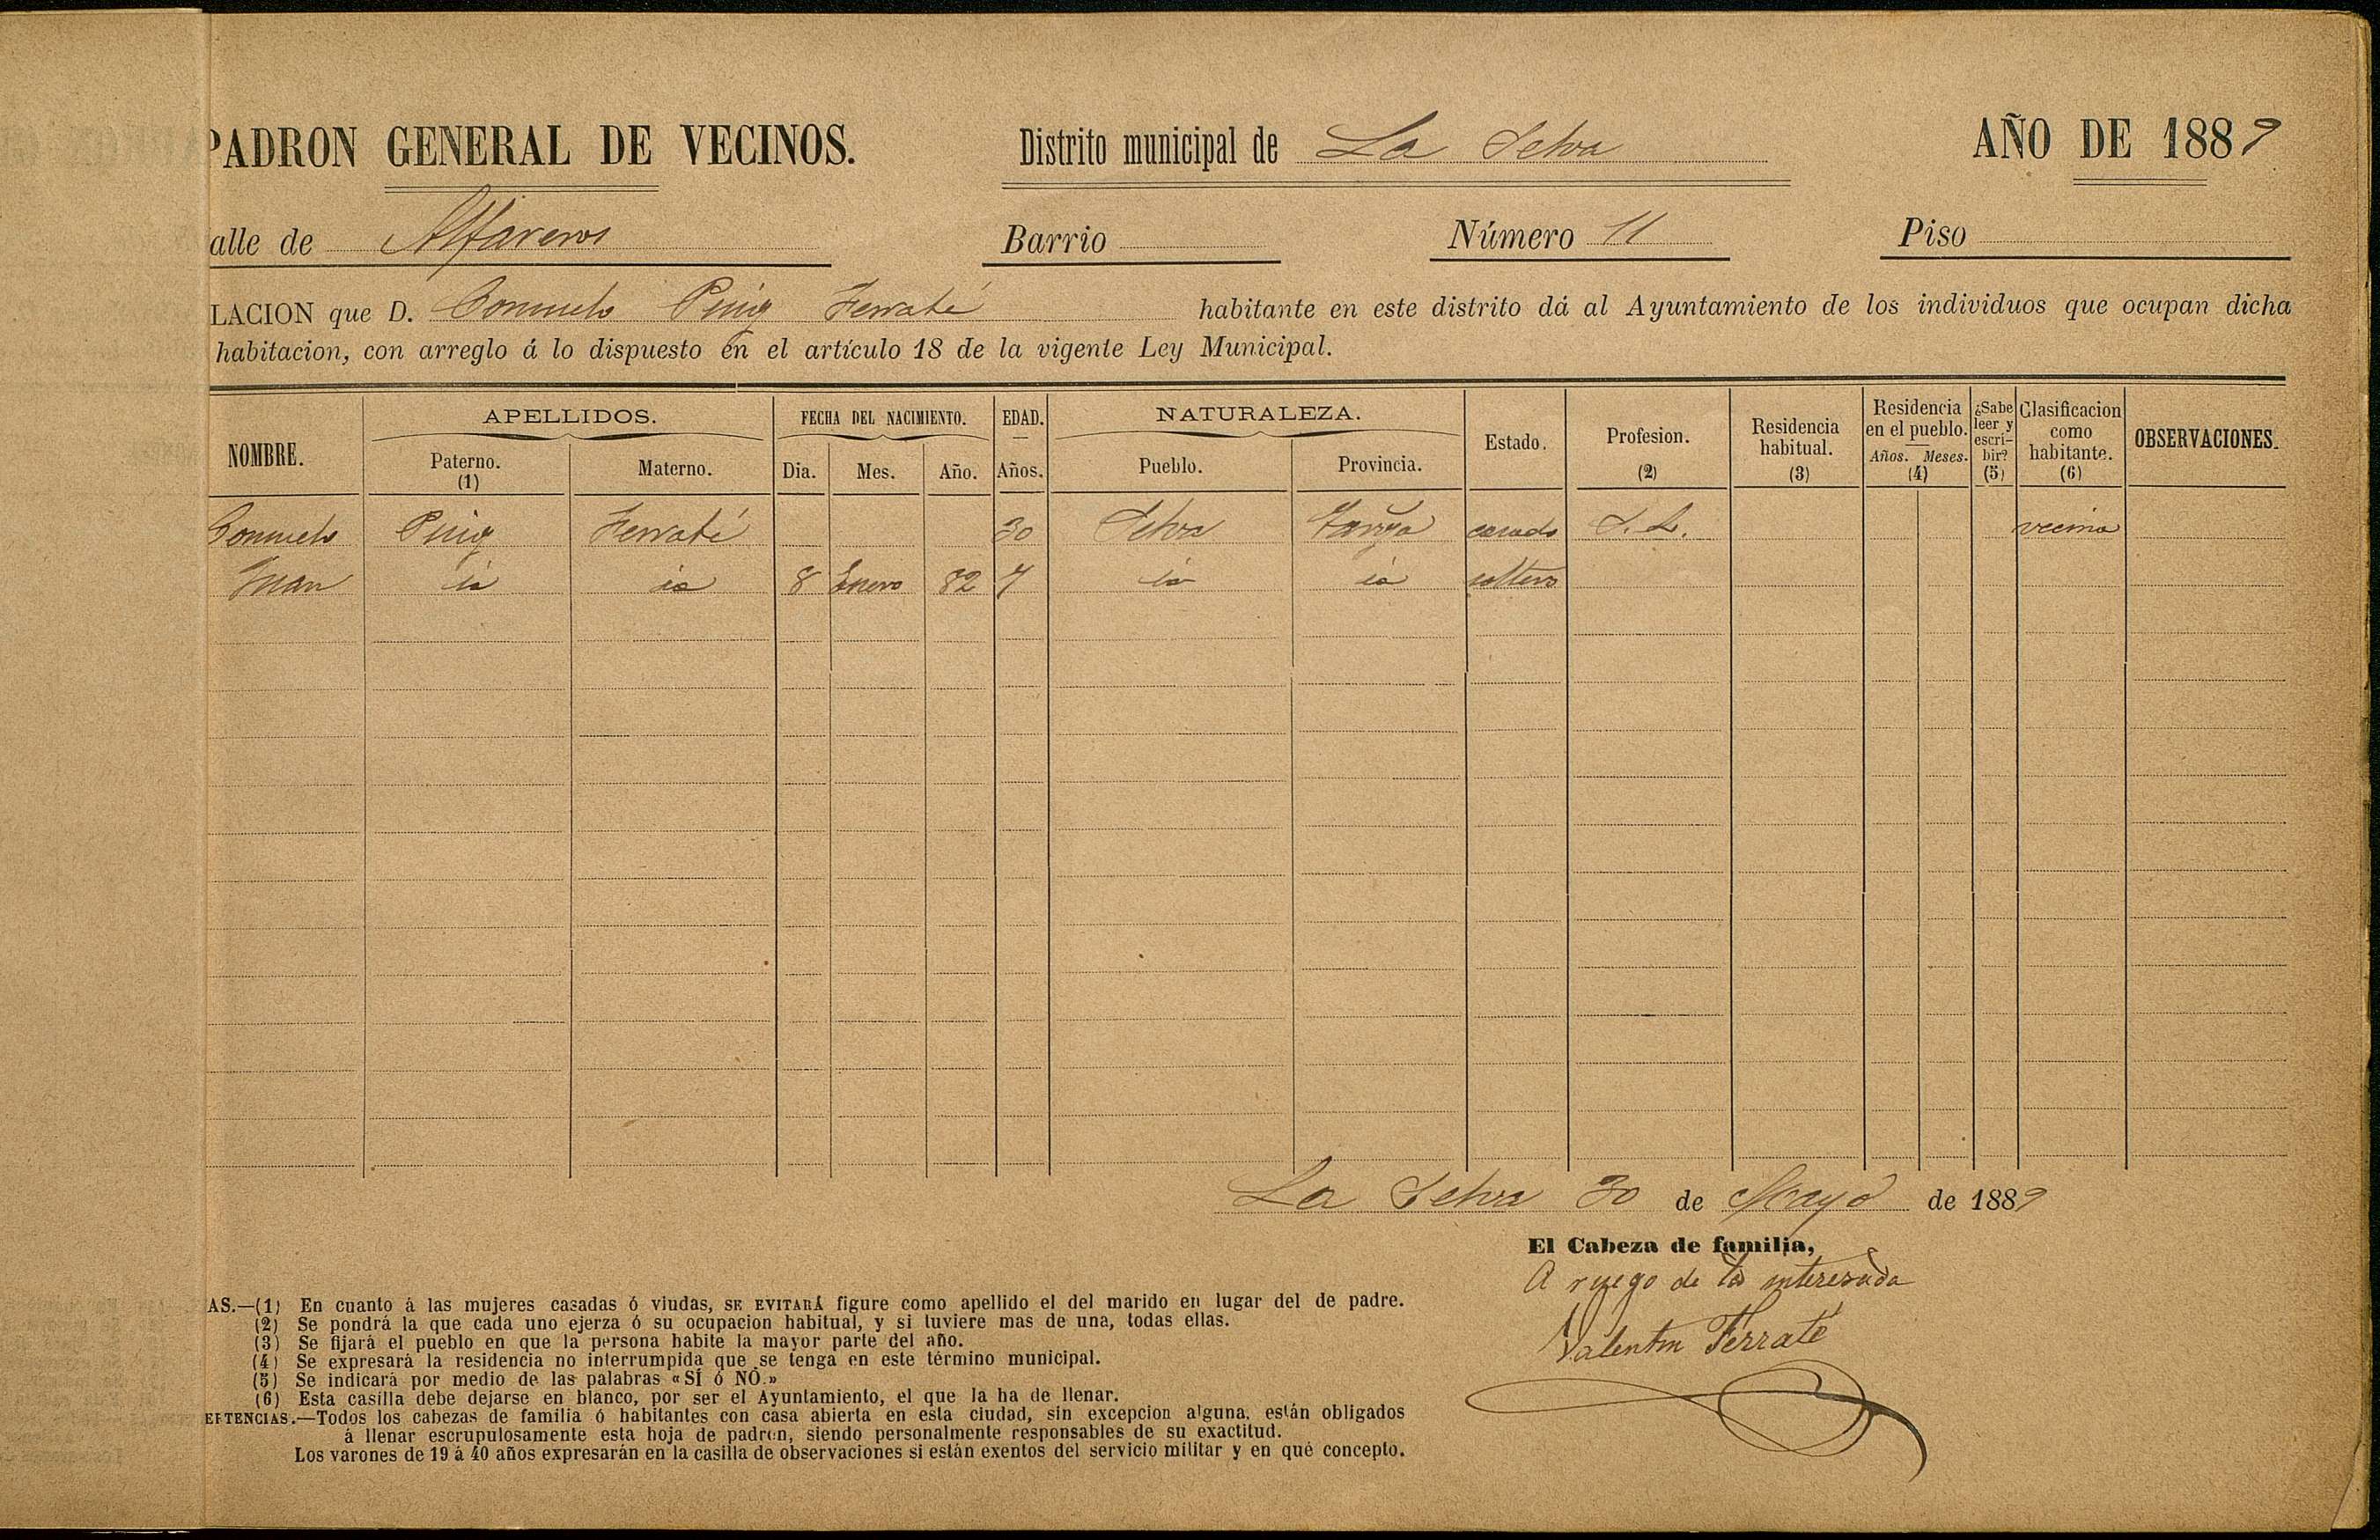 PADRON GENERAL DE VECINOS. Distrito municipal de La Selva AÑO DE 1889
alle de Alfareros Barrio Número 11 Piso
LACION que D. Consuelo Puig Ferraté habitante en este distrito dá al Ayuntamiento de los individuos que ocupan dicha
habitacion, con arreglo á lo dispuesto en el artículo 18 de la vigente Ley Municipal.
NOMBRE. APELLIDOS. FECHA DEL NACIMIENTO. EDAD. NATURALEZA. Estado. Profesion. (2) Residencia habitual. (3) Residencia en el pueblo. Años. Meses. (4) ¿Sabe leer y escribir? (5) Clasificacion como habitante. (6) OBSERVACIONES.
Paterno. (1) Materno. Dia. Mes. Año. Años. Pueblo. Provincia.
Consuelo Puig Ferraté 30 Selva casado S. L. vecina
Juan id id 8 Enero 82 7 id id soltero
La Selva 30 de Mayo de 1889
El Cabeza de familia,
A ruego de la interesada
Valentin Ferraté
AS.—(1) En cuanto á las mujeres casadas ó viudas, SE EVITARÁ figure como apellido el del marido en lugar del de padre.
(2) Se pondrá la que cada uno ejerza ó su ocupacion habitual, y si tuviere mas de una, todas ellas.
(3) Se fijará el pueblo en que la persona habite la mayor parte del año.
(4) Se expresará la residencia no interrumpida que se tenga en este término municipal.
(5) Se indicará por medio de las palabras «SÍ ó NÓ.»
(6) Esta casilla debe dejarse en blanco, por ser el Ayuntamiento, el que la ha de llenar.
ERTENCIAS.—Todos los cabezas de familia ó habitantes con casa abierta en esta ciudad, sin excepcion alguna, están obligados
á llenar escrupulosamente esta hoja de padron, siendo personalmente responsables de su exactitud.
Los varones de 19 á 40 años expresarán en la casilla de observaciones si están exentos del servicio militar y en qué concepto.